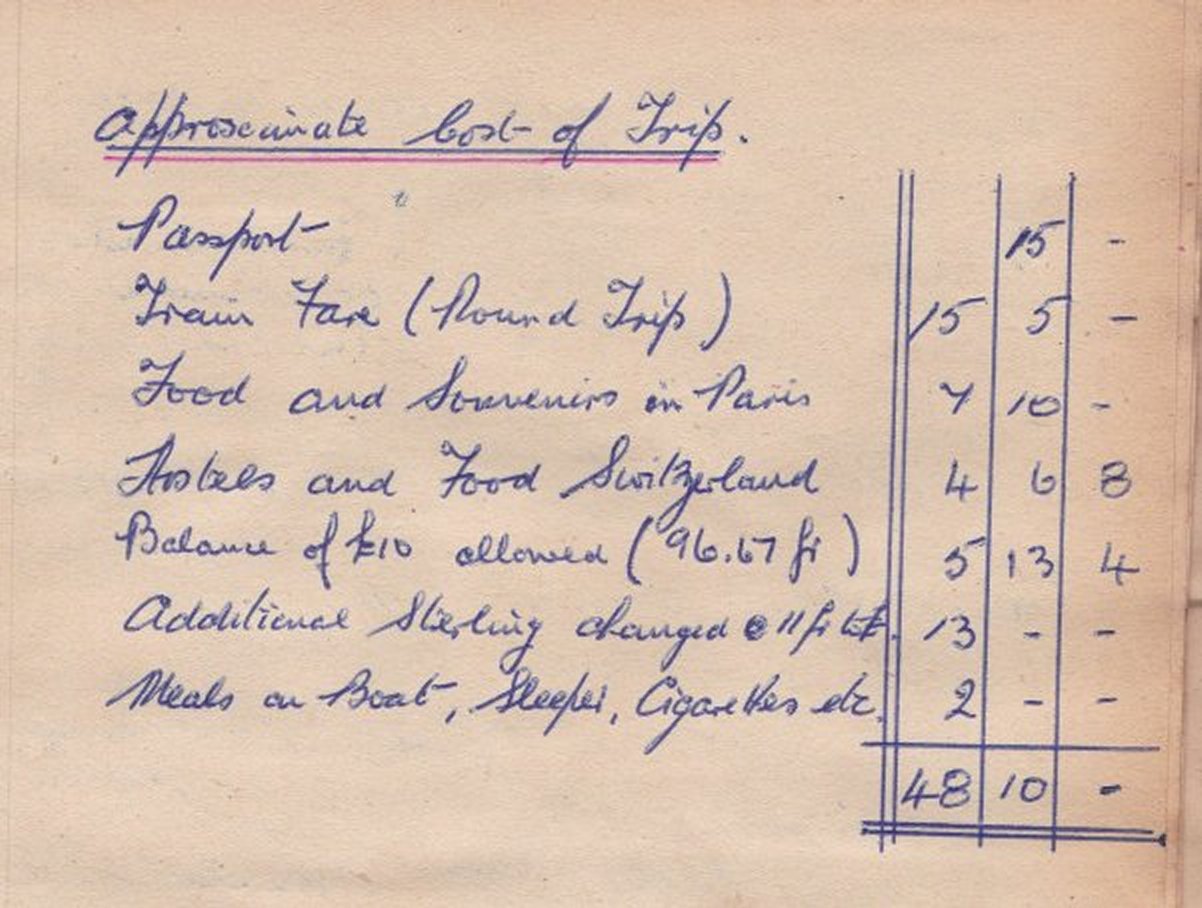 Approximate Cost of Trip.
Passport 15 -
Train Fare (Round Trip) 15 5 -
Food and Souvenirs in Paris 7 10 -
Hostels and Food Switzerland 4 6 8
Balance of £10 allowed (96.67 fr) 5 13 4
Additional Sterling changed @ 11 fr to £. 13 - -
Meals on Boat, Sleeper, Cigarettes etc. 2 - -
48 10 -